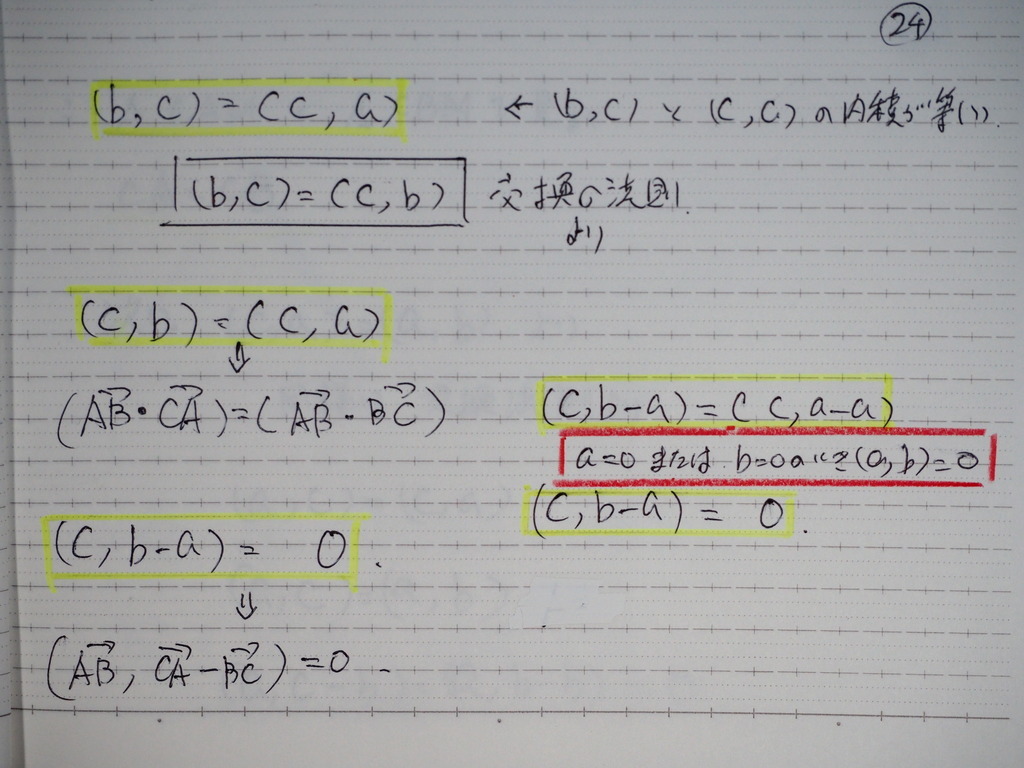 ㉔
(b,c) = (c,a) ← (b,c) と (c,a) の内積が等しい.
(b,c) = (c,b) 交換の法則
より
(c,b) = (c,a)
⇓
(AB・CA) = (AB・BC)
(c,b-a) = (c,a-a)
a=0 または b=0のとき(a,b)=0
(c,b-a) = 0.
(c,b-a) = 0.
⇓
(AB, CA-BC) = 0.